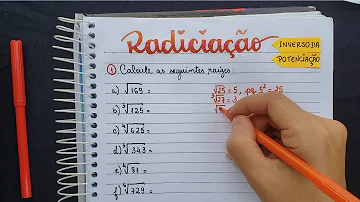 Radiciação
INVERSO DA
POTENCIAÇÃO
1 Calcule as seguintes raízes:
a) √169 =
b) ³√125 =
c) ⁴√625 =
d) ³√343 =
e) ⁴√81 =
f) ⁶√729 =
√25 = 5, pq 5² = 25
³√27 = 3